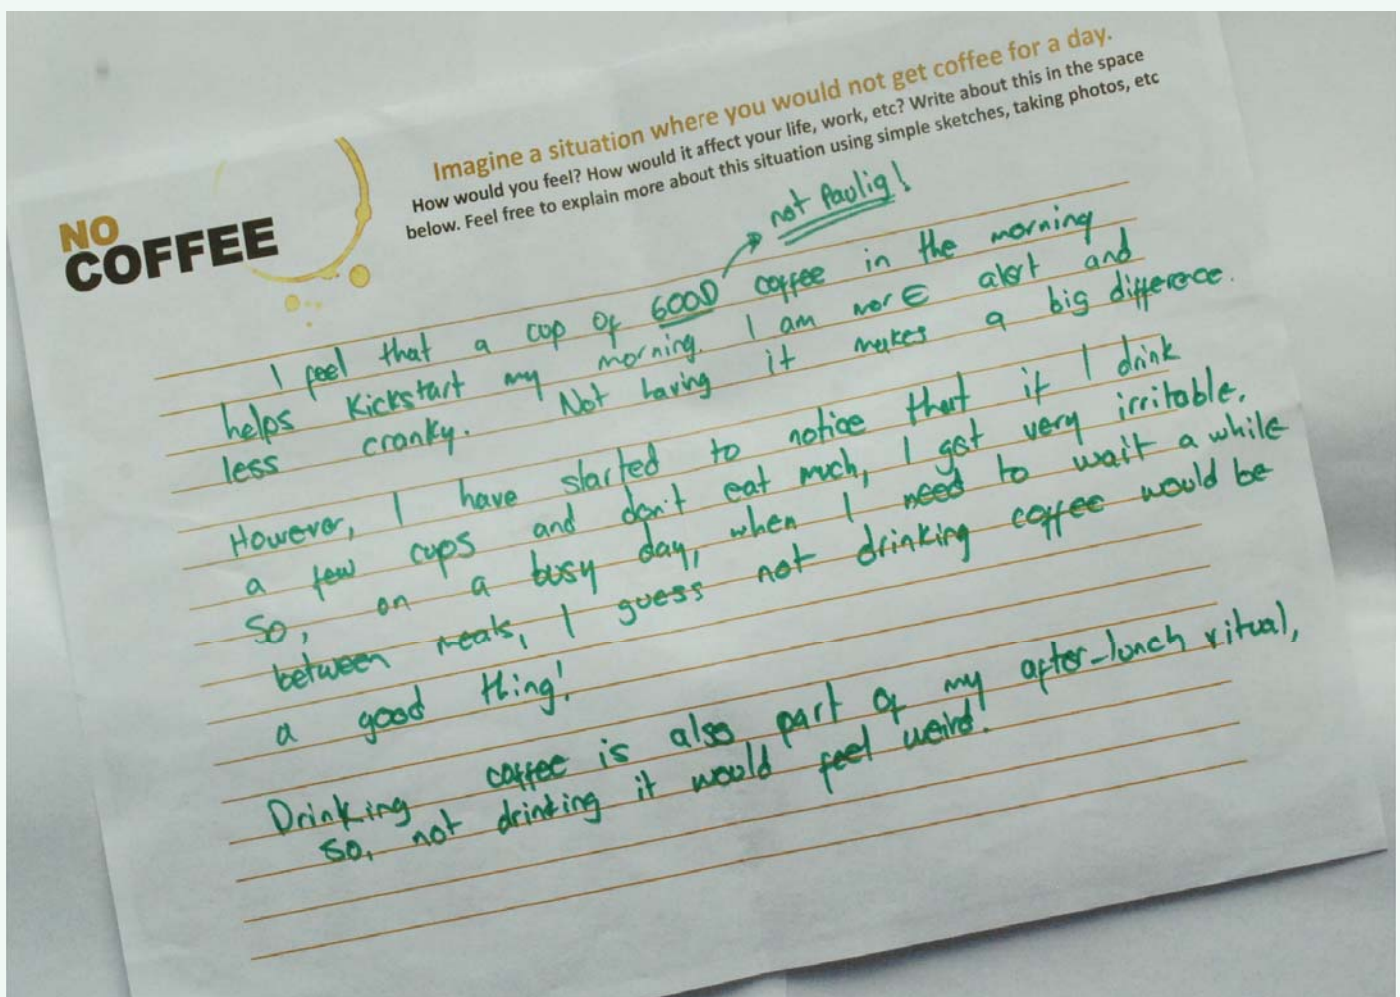 NO
COFFEE
Imagine a situation where you would not get coffee for a day.
How would you feel? How would it affect your life, work, etc? Write about this in the space
below. Feel free to explain more about this situation using simple sketches, taking photos, etc
not Paulig!
I feel that a cup of GOOD coffee in the morning
helps kickstart my morning. I am morE alert and
less cranky. Not having it makes a big difference.
However, I have started to notice that if I drink
a few cups and don't eat much, I get very irritable.
So, on a busy day, when I need to wait a while
between meals, I guess not drinking coffee would be
a good thing!
Drinking coffee is also part of my after-lunch ritual,
so, not drinking it would feel weird!